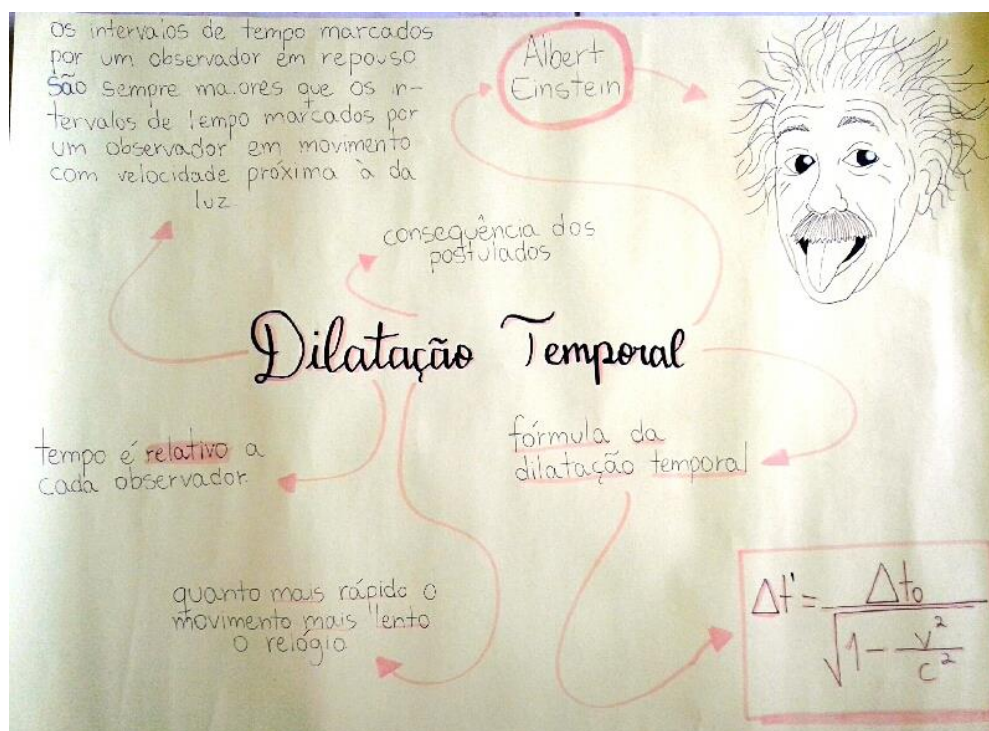 os intervalos de tempo marcados
por um observador em repouso
São sempre maiores que os in-
tervalos de tempo marcados por
um observador em movimento
com velocidade próxima à da
luz
Albert
Einstein
consequência dos
postulados
Dilatação Temporal
tempo é relativo a
cada observador.
fórmula da
dilatação temporal
quanto mais rápido o
movimento mais lento
o relógio
Δt' = Δt₀ / √(1 - v²/c²)